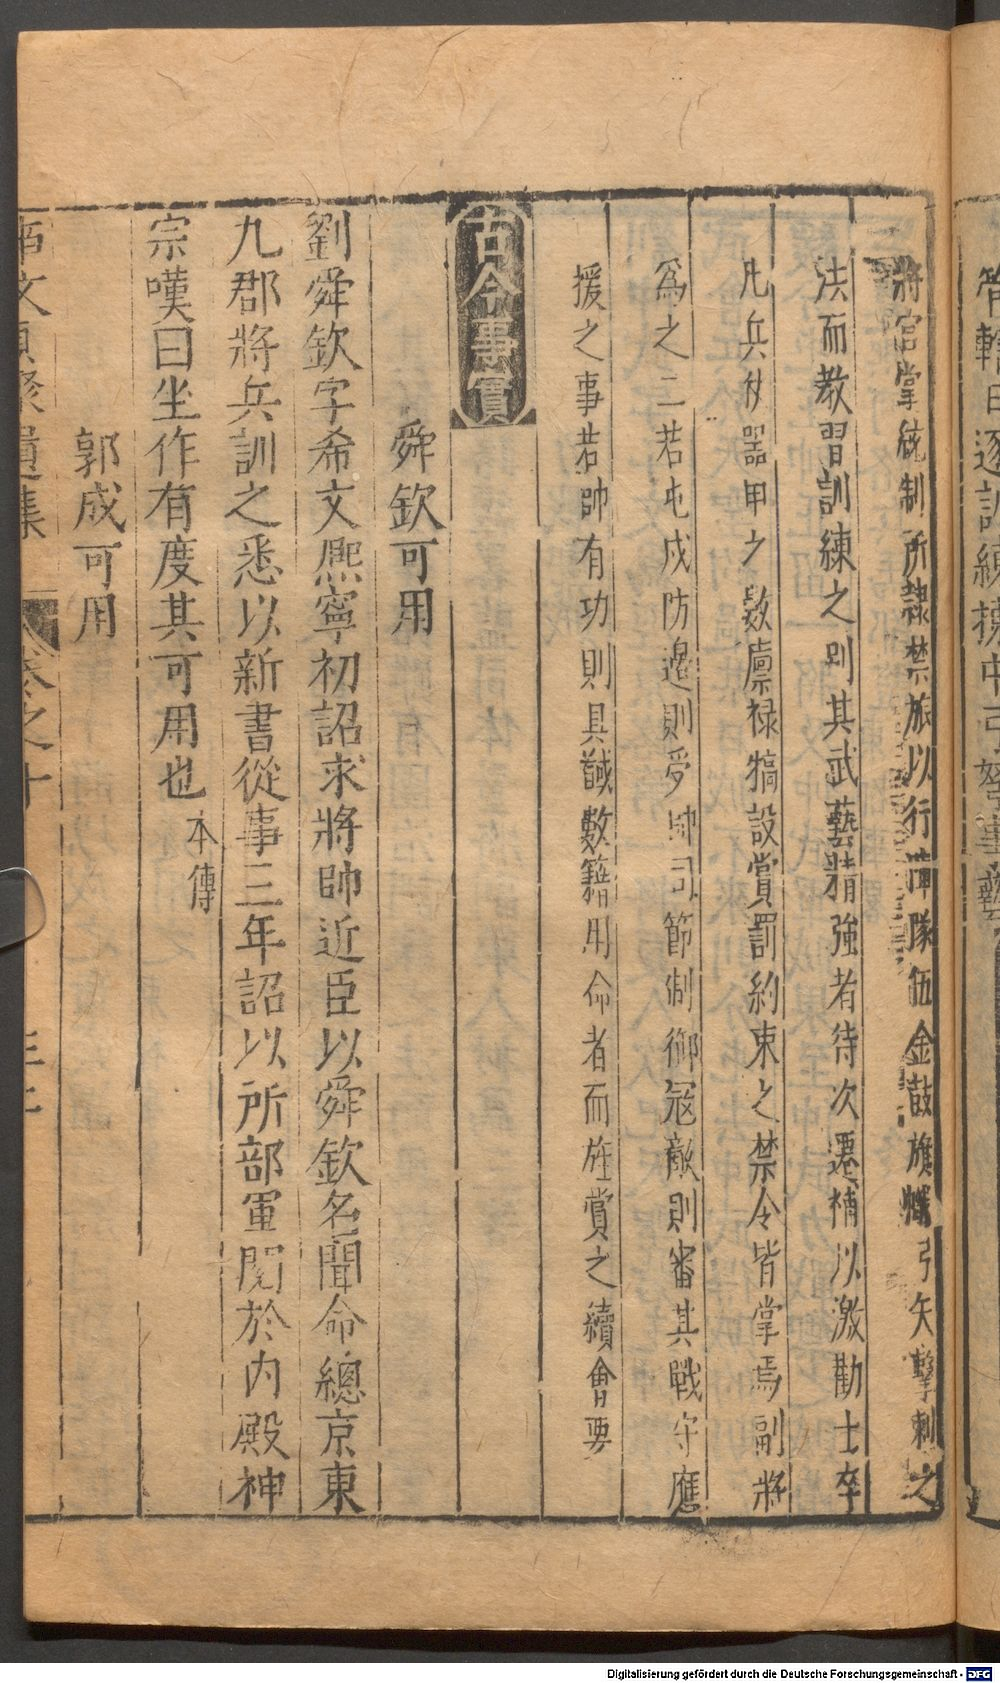 管轄日逐訓練撓
將官掌統制所隸禁旅以行陣隊伍金鼓旗幟弓矢擊刺之
法而教習訓練之別其武藝精強者待次遷補以激勸士卒
凡兵仗器甲之數廩祿犒設賞罰約束之禁令皆掌焉副將
爲之二若屯戍防邉則受帥司節制御冦敵則審其戰守應
援之事若帥有功則具馘數籍用命者而旌賞之續會要
古今事實
舜欽可用
劉舜欽字希文熈寧初詔求將帥近臣以舜欽名聞命總京東
九郡將兵訓之悉以新書從事三年詔以所部軍閱於内殿神
宗嘆曰坐作有度其可用也 本傳
郭成可用
文類聚遺集 卷之十
Digitalisierung gefördert durch die Deutsche Forschungsgemeinschaft - DFG